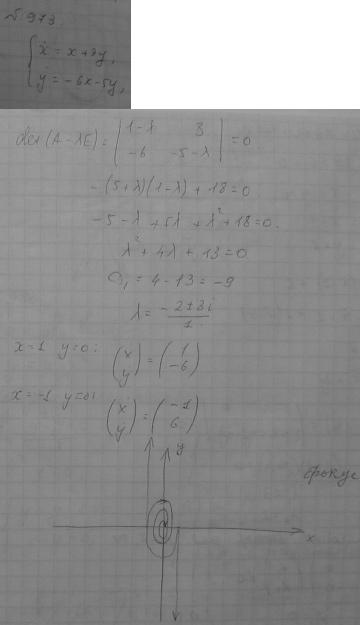 №973.
{ ẋ = x+3y,
ẏ = -6x-5y,
det(A-λE) = | 1-λ 3
-6 -5-λ | = 0
-(5+λ)(1-λ) + 18 = 0
-5-λ+5λ+λ²+18=0.
λ²+4λ+13=0
D₁ = 4-13 = -9
λ = -2±3i / 1
x=1 y=0: (ẋ ẏ) = (1 -6)
x=-1 y=0: (ẋ ẏ) = (-1 6)
y
фокус
x